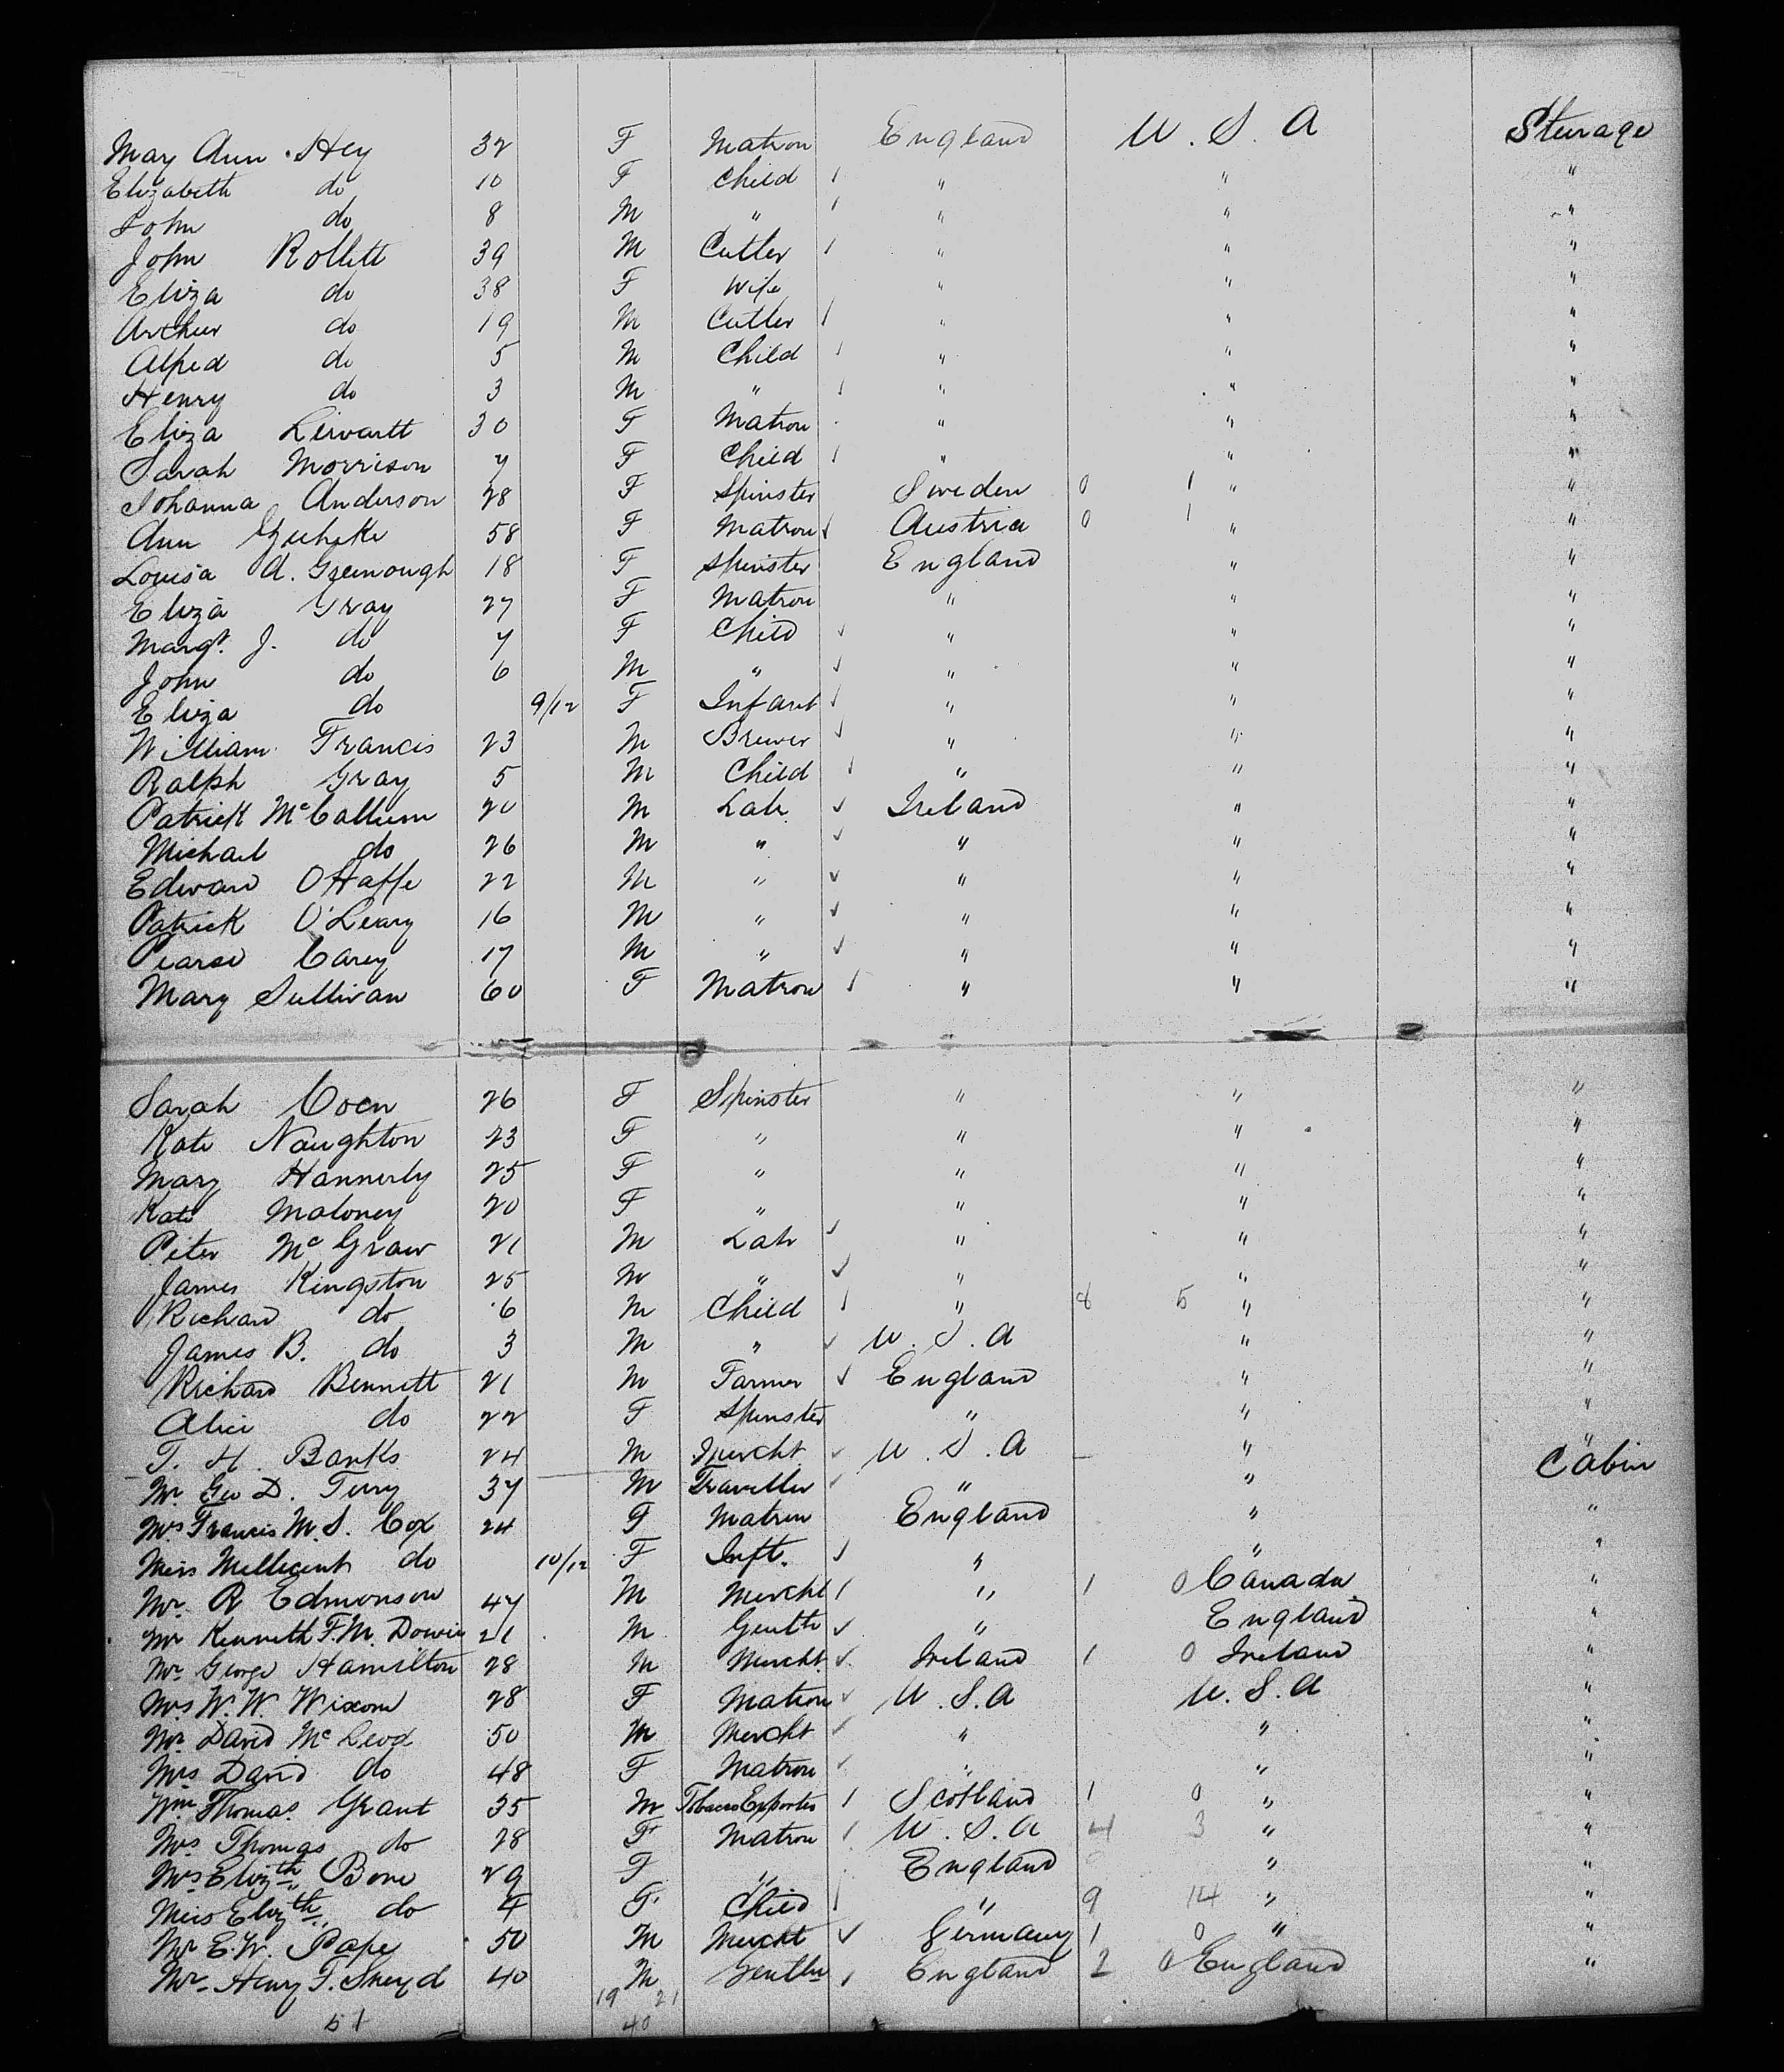 May Ann Hey 32 F Matron England U.S.A Sturage
Elizabeth do 10 F Child " " "
John do 8 M " " " "
John Rollett 39 M Cutler " " "
Eliza do 38 F Wife " " "
Arthur do 19 M Cutler " " "
Alfred do 5 M Child " " "
Henry do 3 M " " " "
Eliza 30 F Matron " " "
Sarah Morrison 7 F Child " " "
Johanna Anderson 28 F Spinster Sweden 0 1 " "
Ann 58 F Matron Austria 0 1 " "
Louisa A. Greenough 18 F Spinster England " "
Eliza Gray 27 F Matron " " "
Margt. J. do 7 F Child " " "
John do 6 M " " " "
Eliza do 9/12 F Infant " " "
William Francis 23 M Brewer " " "
Ralph Gray 5 M Child " " "
Patrick McCallum 20 M Lab. Ireland " "
Michael do 26 M " " " "
Edward 22 M " " " "
Patrick O'Leary 16 M " " " "
Pearse Carey 17 M " " " "
Mary Sullivan 60 F Matron " " "
Sarah Coen 26 F Spinster " " "
Kate Naughton 23 F " " " "
Mary Hannerly 25 F " " " "
Kate Maloney 20 F " " " "
Peter McGraw 21 M Labr " " "
James Kingston 25 M " " " "
Richard do 6 M Child " 8 5 " "
James B. do 3 M " U.S.A " "
Richard Bennett 21 M Farmer England " "
Alice do 22 F Spinster " " "
T. H. Banks 24 M Mercht U.S.A " "
Mr. Geo D. Terry 37 M Traveller " " Cabin
Mrs Francis M. S. Cox 24 F Matron England " "
Miss Mellicent do 10/12 F Inft. " " "
Mr. R Edmonson 47 M Mercht " 1 0 Canada "
Mr Kenneth F. M. Dowie 21 M Gentln " England "
Mr. George Hamilton 28 M Mercht. Ireland 1 0 Ireland "
Mrs W. W. Wixom 28 F Matron U.S.A U.S.A "
Mr. David McLeod 50 M Mercht " " "
Mrs David do 48 F Matron " " "
Wm Thomas Grant 35 M Tobacco Exporter Scotland 1 0 " "
Mrs Thomas do 28 F Matron U.S.A 4 3 " "
Mrs Elizth Bone 29 F " England " "
Miss Elizth do 4 F Child " 9 14 " "
Mr E. W. Pape 50 M Mercht Germany 1 0 " "
Mr. Henry T. Sneyd 40 M Gentln England 2 0 England "
19 21
51 40